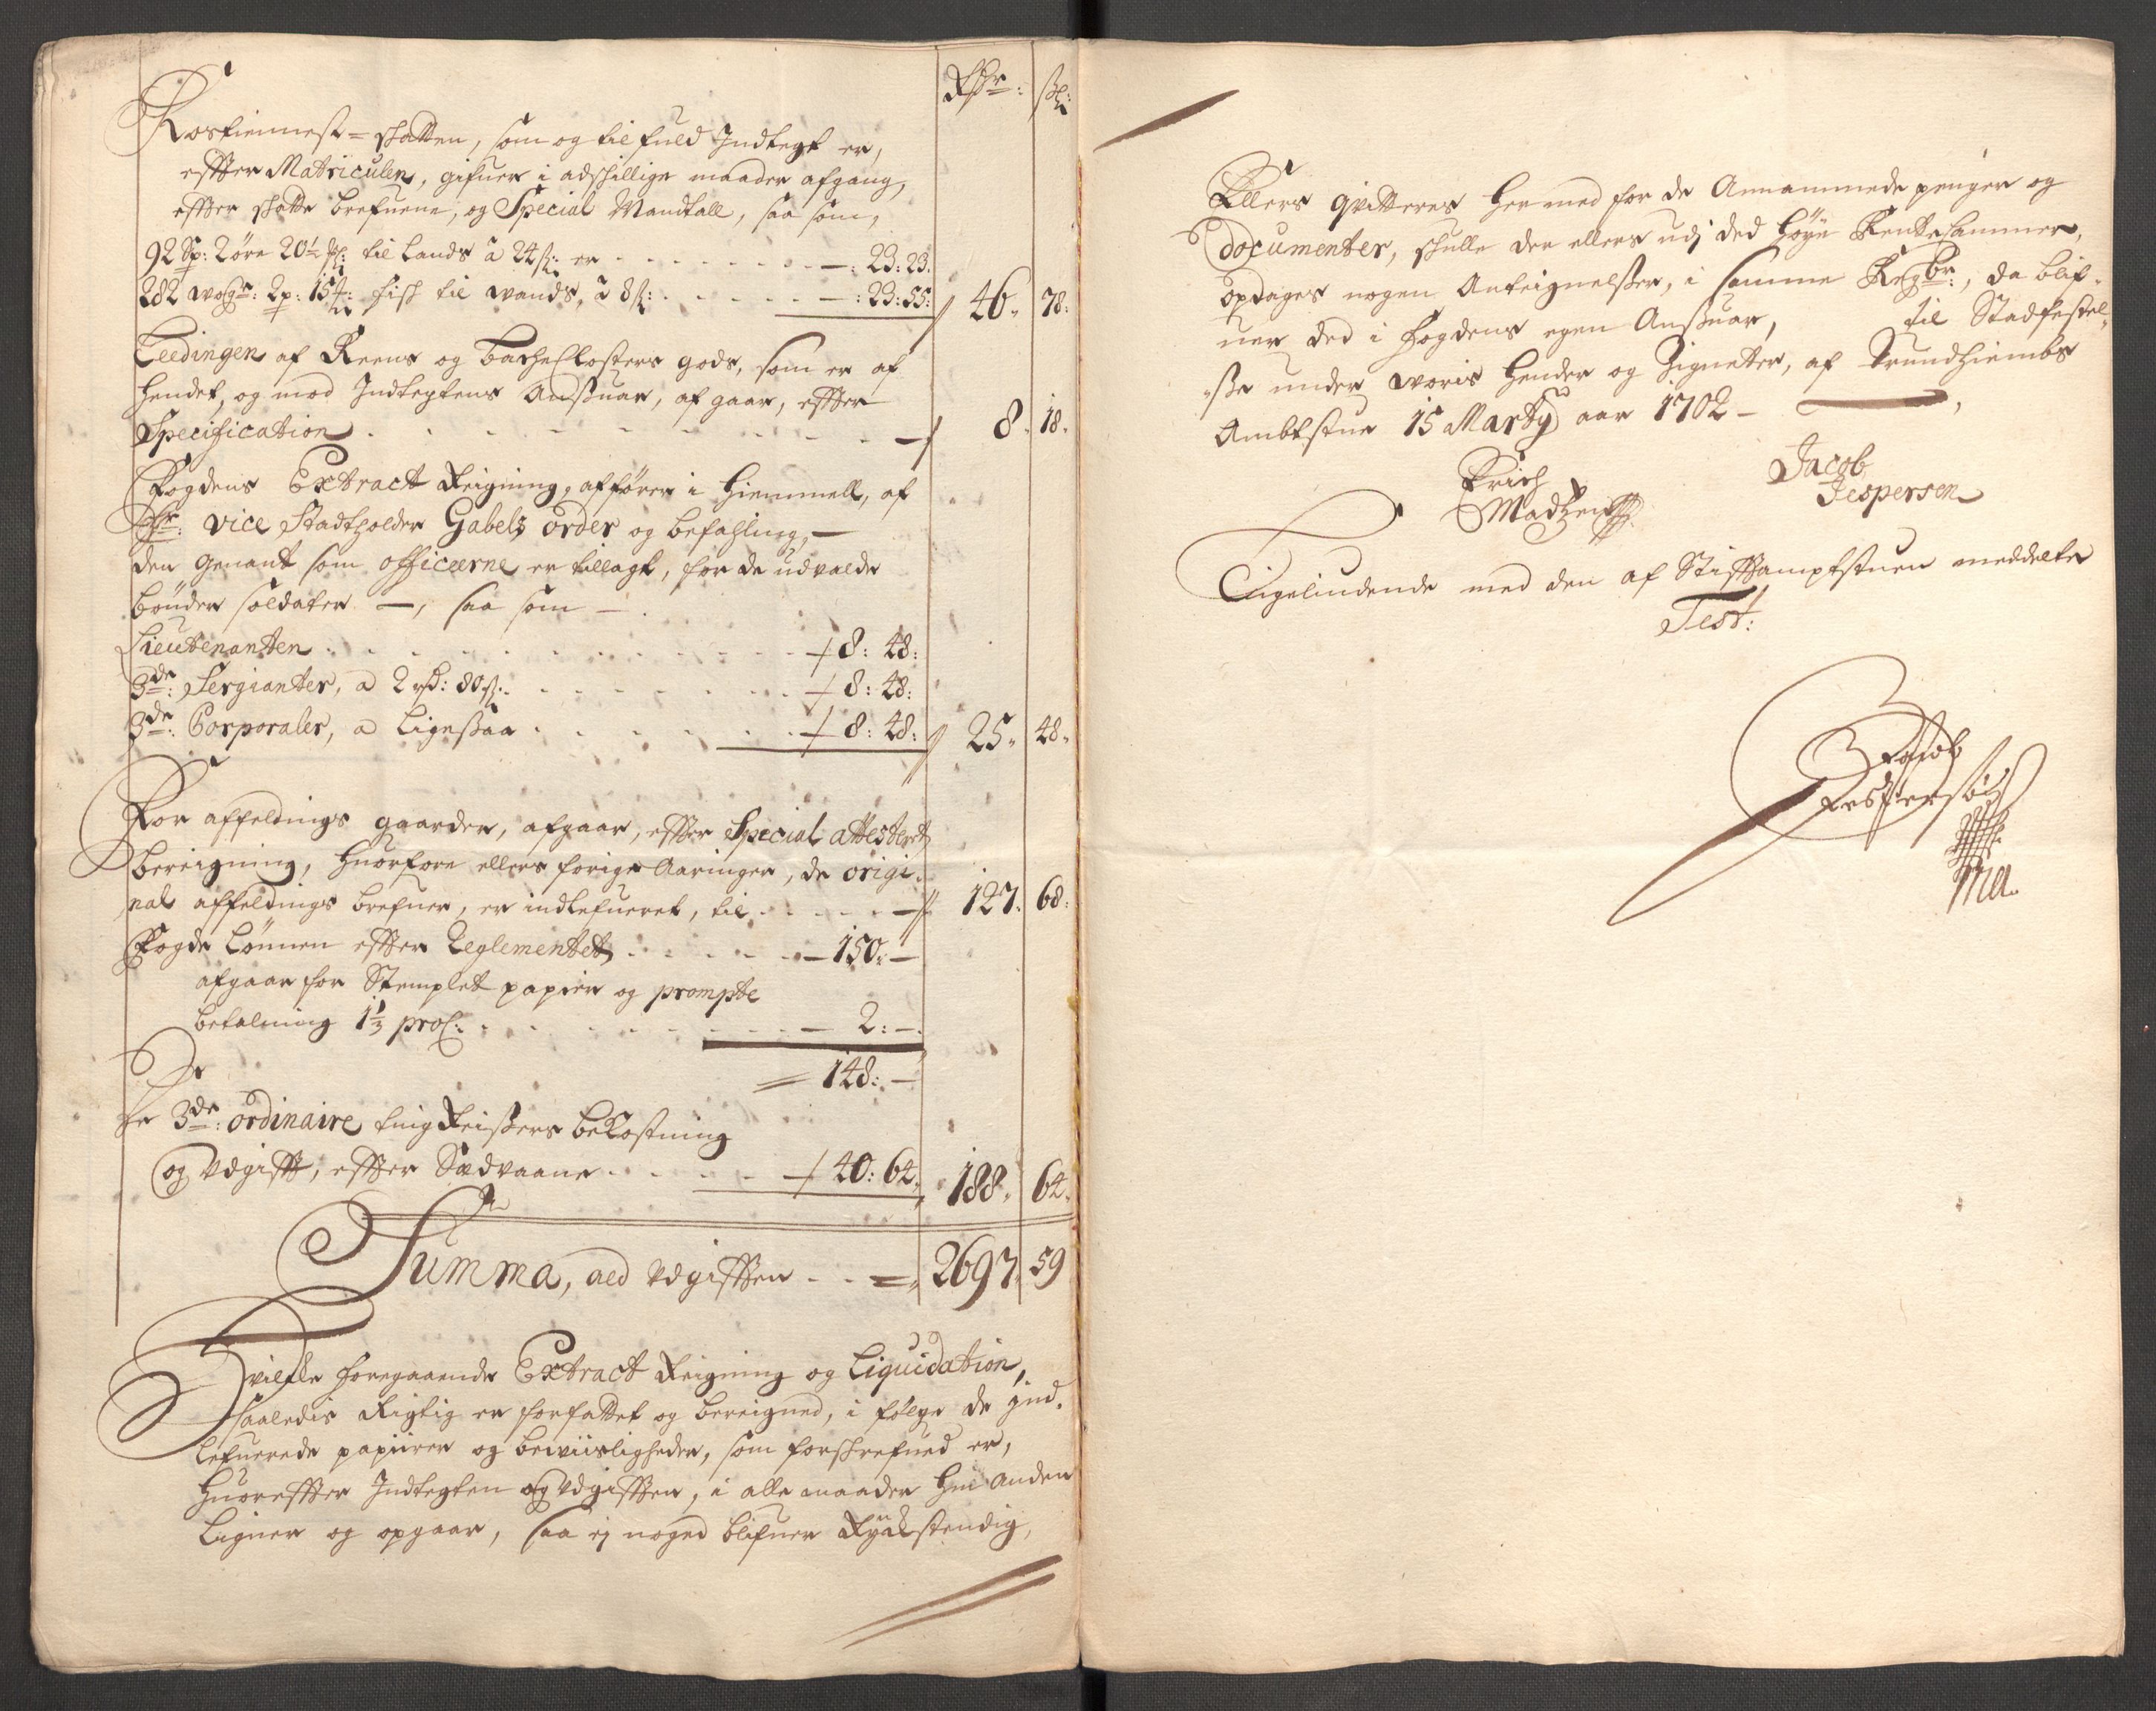 Rdr: sk:
Rostienest-skatten, som og til fuld Indtegt er,
effter Matriculen, gifuer i adskillige maader afgang,
effter skatte brefuene, og Special Mandtall, saa som,
92 Sp: 2 øre 20½ ꝳ: til Lands à 24 sk: er - - - : 23:23.
282 wogr: 2p: 15 ꝳ: fisk til wands, à 8 sk: - - - : 23:55: 46. 78:
Leedingen af Reens og Bache Closters gods, som er af
hendet, og mod Indtegtens Ansuar, af gaar, effter
Specification - - - 8. 18.
Fogdens Extract Reigning, affører i hiemmell, af
Hr: Vice Stadtholder Gabels order og befahling, —
den genant som officerne er tillagt, for de udvalde
bønder soldater —, saa som —
Lieutenanten - - - 8: 48:
3de: Sergianter, a 2 rd: 80 sk: - - - 8: 48:
3de: Corporaler, a Ligesaa - - - 8: 48: 25. 48.
For affeldings gaarder, afgaar, effter Special attesteret
bereigning, huorfore ellers forige Aaringer, de origi-
nal affeldings brefuer, er indlefueret, til - - - 127. 68:
Fogde Lønnen effter Reglementet - - - 150: —
afgaar for Stemplet papier og prompte
betalning 1⅓ proC: - - - 2: —
148: —
De 3de: ordinaire ting Reisers bekostning
og Udgifft, effter Sædvaane - - - 40: 64. 188. 64.
Summa, aed Udgifften - - 2697. 59
Hvilke foregaaende Extract Reigning og Liquidation,
saaledis Rigtig er forfattet og bereigned, i følge de ind-
lefuerede papiirer og beviisligheder, som forskrefued er,
huoreffter Indtegten og Udgifften, i alle maader hin anden
Ligner og opgaar, saa ej noged blifuer Ryckstendig,
Ellers qvitteres hermed for de Annammede penger og
Documenter, skulle der ellers udj ded høye Rentekammer,
opdages nogen Anteignelser, i samme Regbr:, da blif-
uer ded i fogdens egen Ansuar, til Stadfestel-
se under woris hender og Zigneter, af Trundhiembs
Ambtstue 15 Marty aar 1702 —
Erich
Madtzen
Jacob
Jespersen
Ligeliudende med den af Stifftamptstuen meddelte
Test:
Jacob
Jespersøn
Ma.